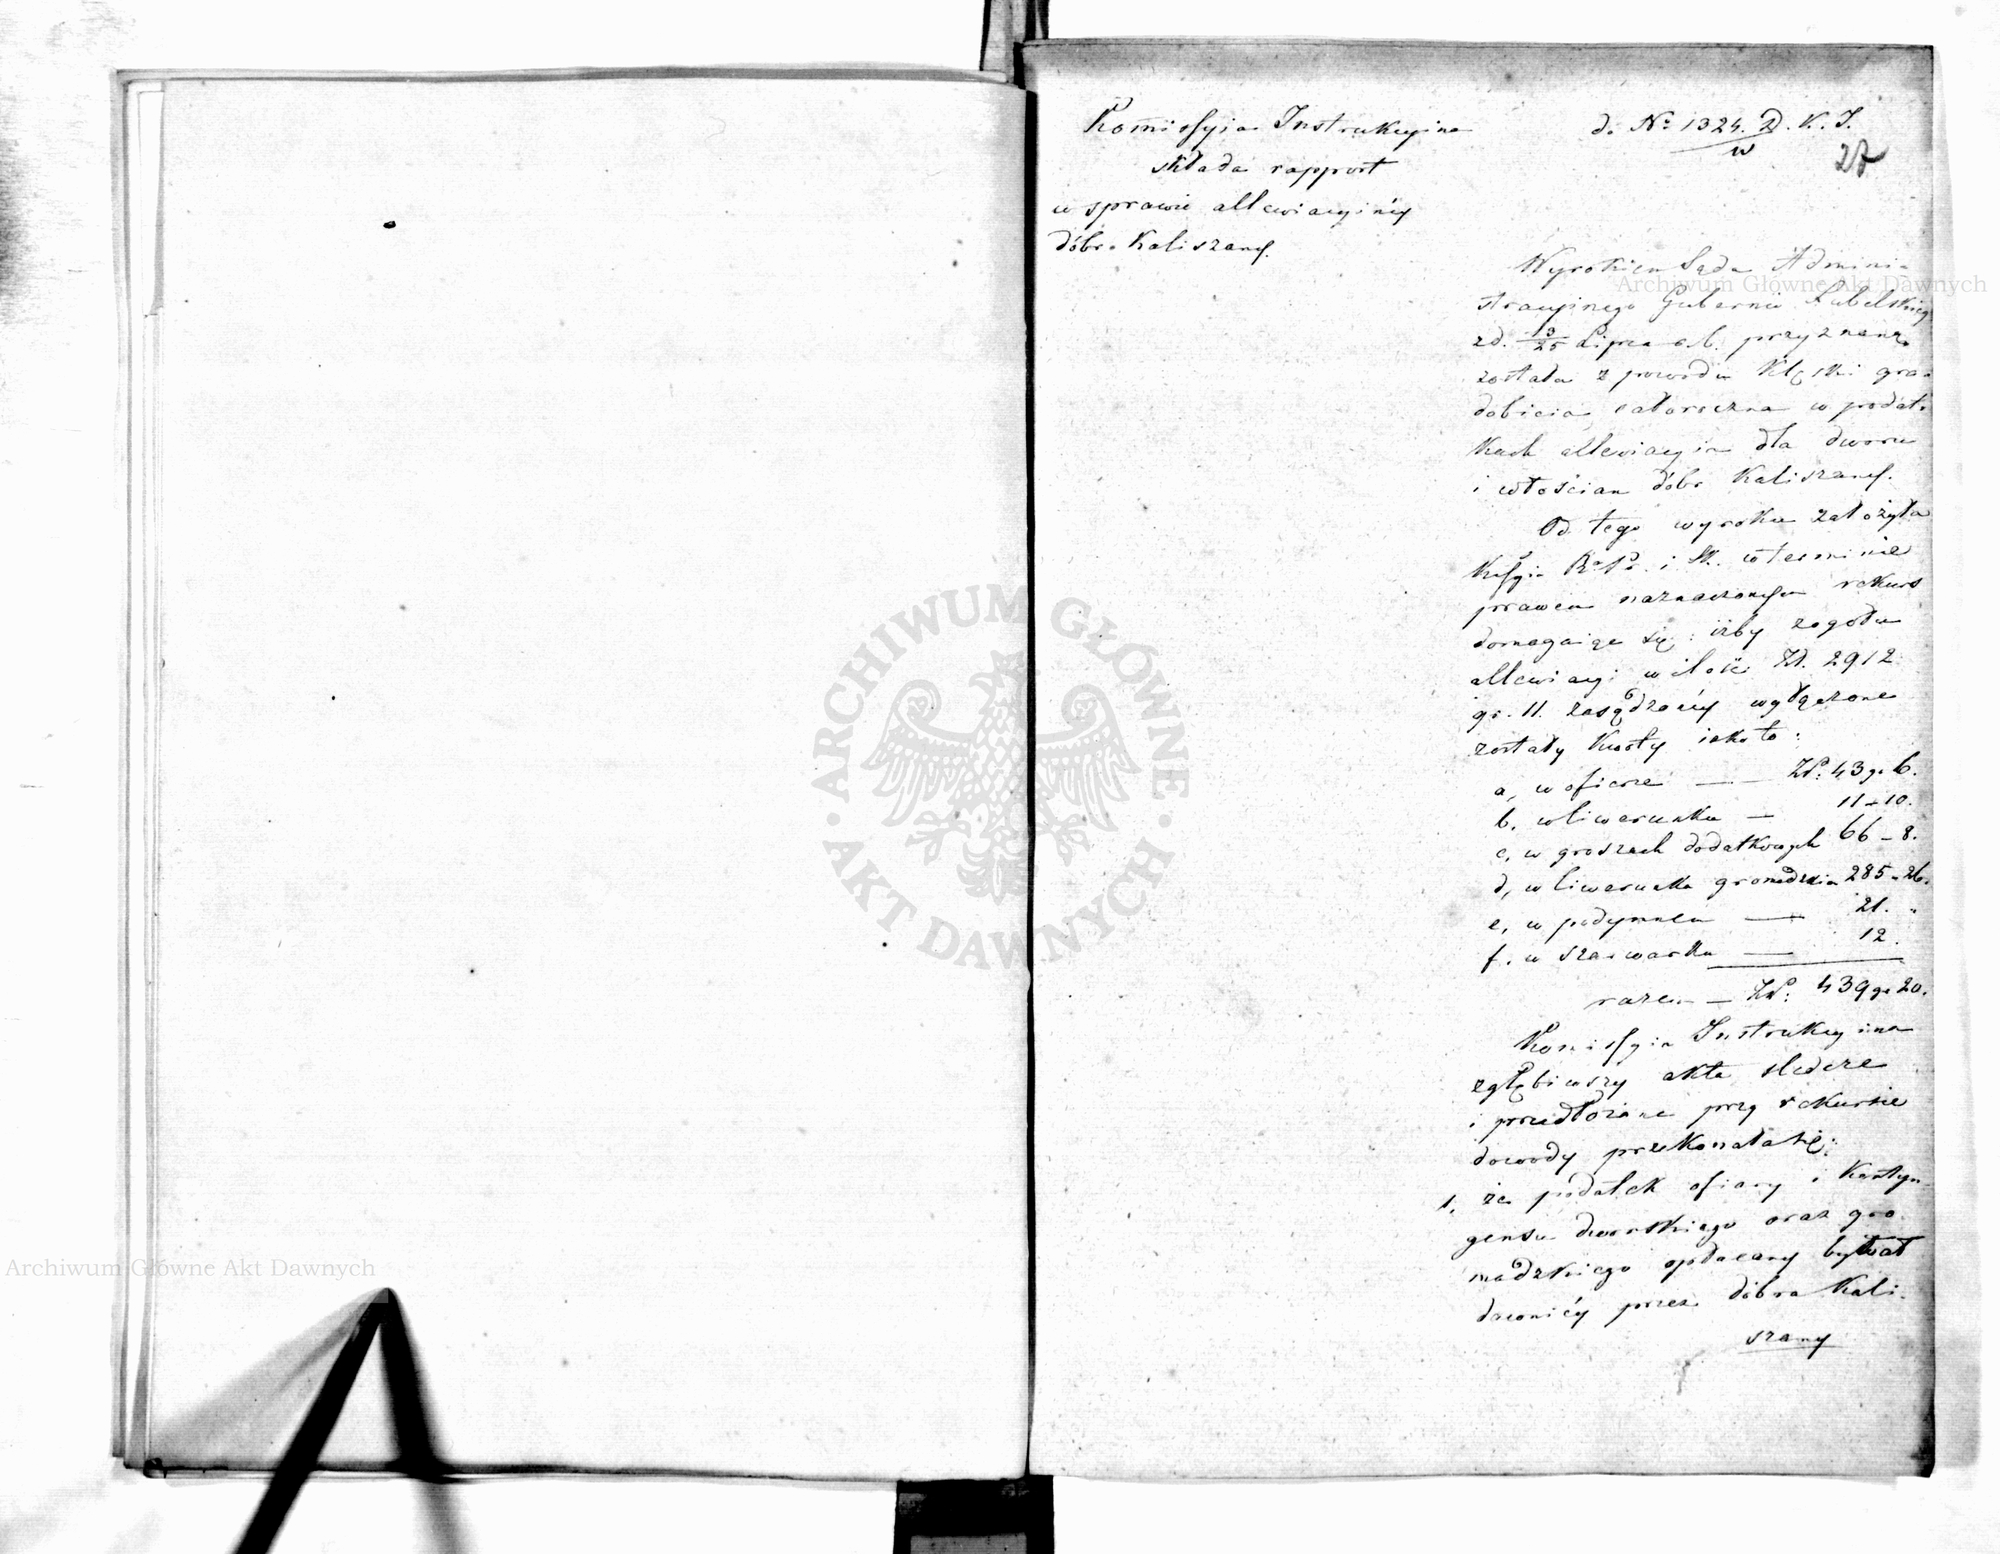 Komissyia Instrukcyina
składa rapport
w sprawie allewiacyinéy
dóbr Kaliszany.
do No 1324. D. K. I.
w
27
Wyrokiem Sądu Admini-
stracyinego Gubernii Lubelskiey
zd. 13/25 Lipca r.b. przyznaną
została z powodu klęski gra-
dobicia całoroczna w podat-
kach allewiacyia dla dworu
i włościan dóbr Kaliszany.
Od tego wyroku założyła
Kssyia R. P. i Sk. w terminie
prawem naznaczonym rekurs
domagaiąc się: iżby z ogółu
allewiacyi w ilości Złp. 2912
gr. 11. zasądzonéy wyłączone
zostały kwoty iako to:
a, w ofierze — Złp: 43 gr 6.
b, w liwerunku — 11 - 10.
c, w groszach dodatkowych 66 - 8.
d, w liwerunku gromadzkim 285 - 26.
e, w podymnem — 21. "
f. w szarwarku — 12.
razem — Złp: 439 gr 20.
Komissyia Instrukcyina
zgłębiwszy akta śledcze
i przedłożone przy rekursie
dowody przekonała się:
1, że podatek ofiary i kontyn-
gensu dworskiego oraz gro-
madzkiego opłacany bywał
dawniéy przez dobra Kali-
szany
Archiwum Główne Akt Dawnych
ARCHIWUM GŁÓWNE
AKT DAWNYCH
Archiwum Główne Akt Dawnych